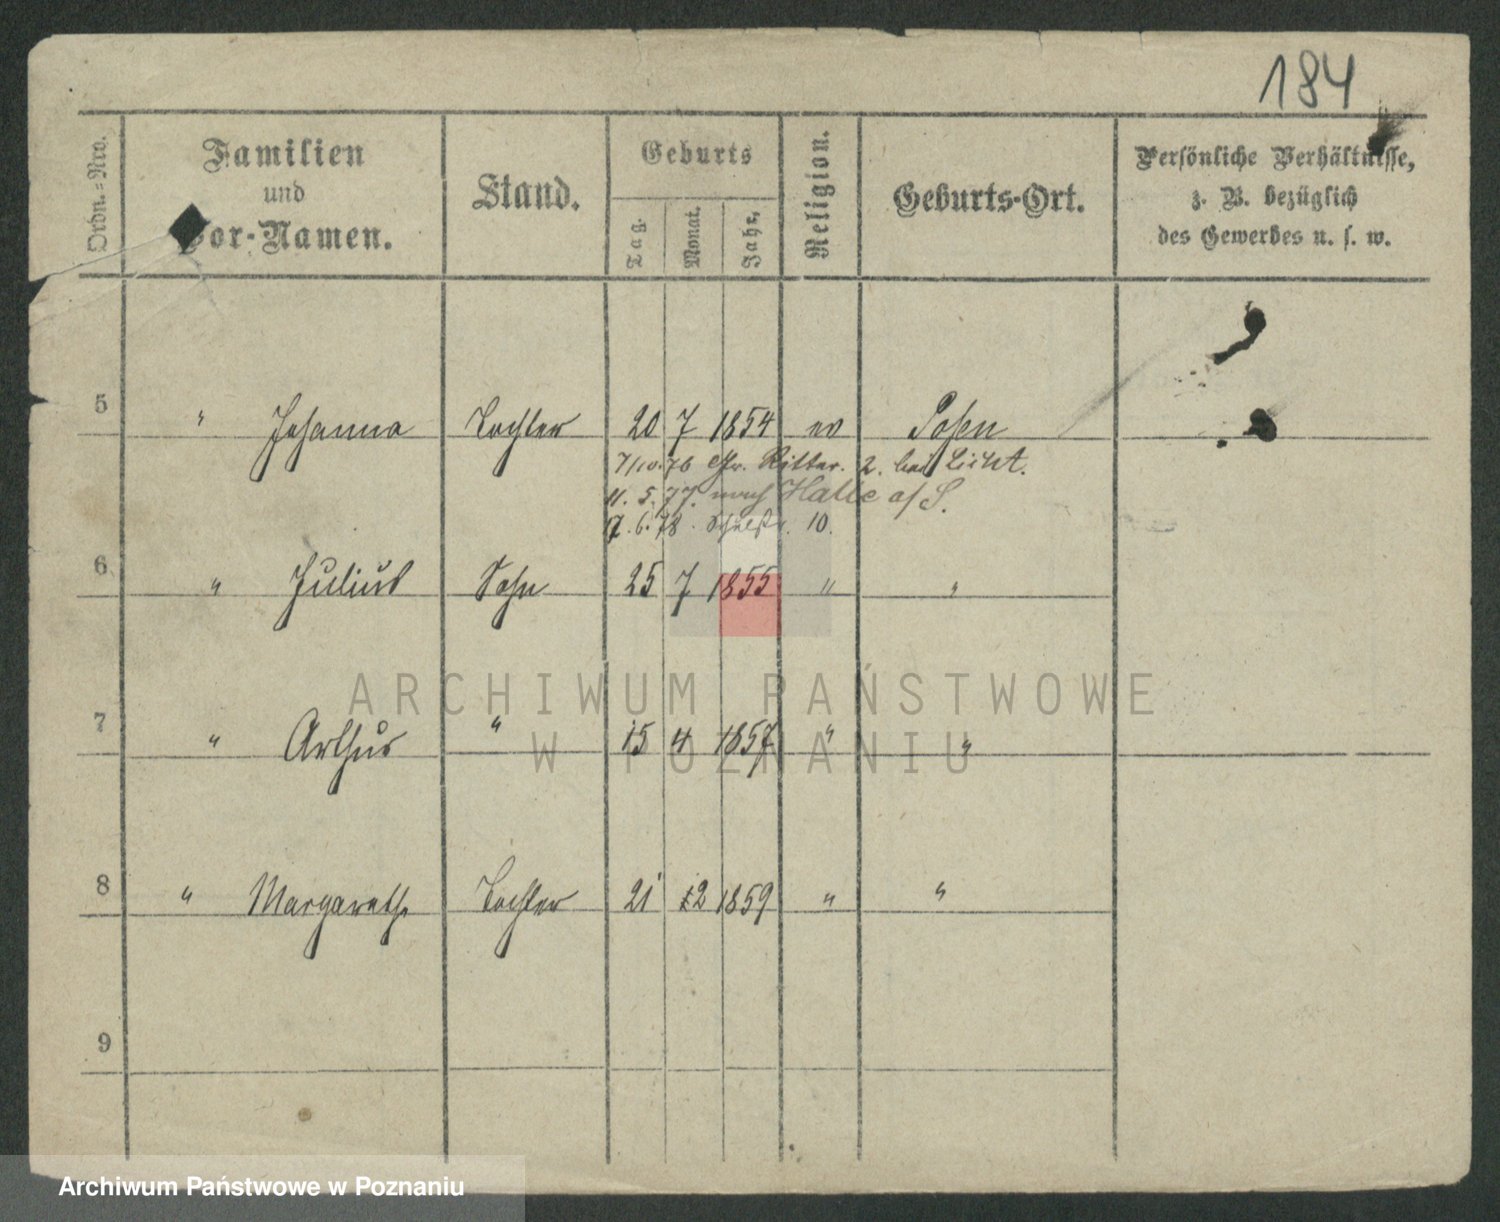 184
Ordn.=Nro.
Familien
und
Vor-Namen.
Stand.
Geburts
Tag.
Monat.
Jahr.
Religion.
Geburts-Ort.
Persönliche Verhältnisse,
z. B. bezüglich
des Gewerbes u. s. w.
5 " Johanna Tochter 20 7 1854 ev Posen
7/10.76 Gr. Ritter. 2. bei Licht.
11. 5. 77. nach Halle a/S.
9. 6. 78. Schulstr. 10.
6 " Julius Sohn 25 7 1855 " "
7 " Arthur " 15 4 1857 " "
8 " Margarethe Tochter 21 12 1859 " "
9
ARCHIWUM PAŃSTWOWE
W POZNANIU
Archiwum Państwowe w Poznaniu